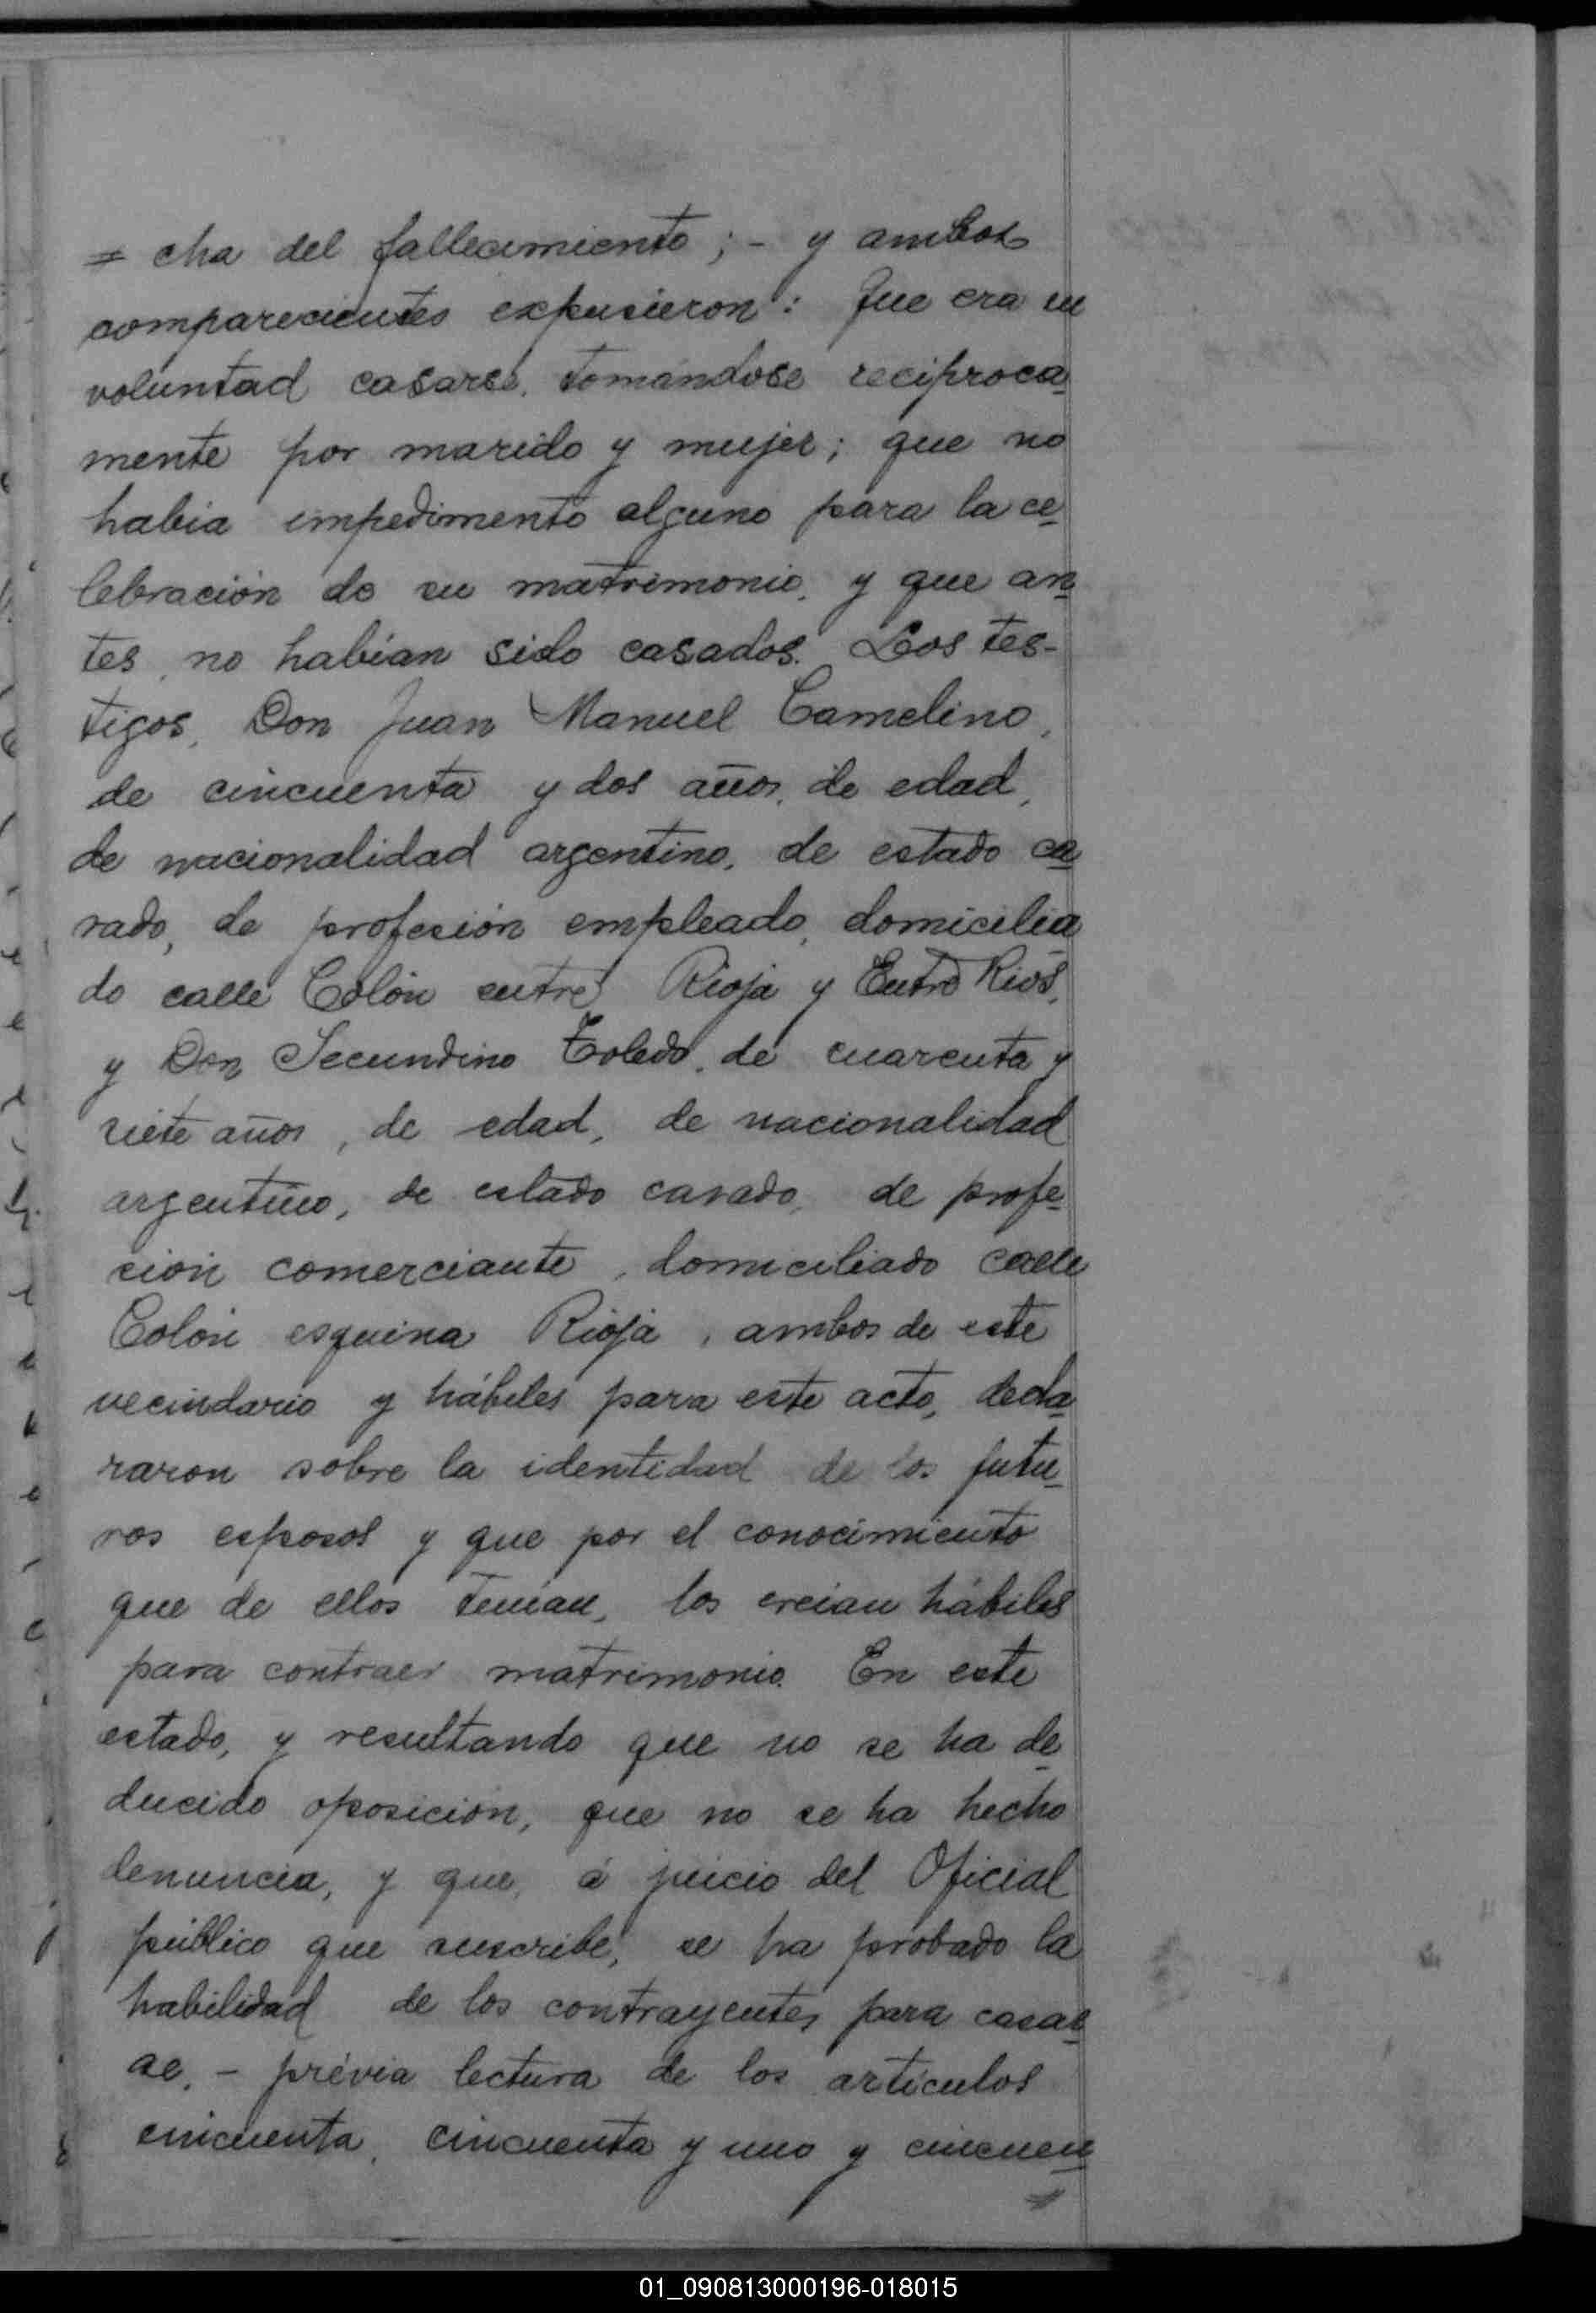 = cha del fallecimiento; - y ambos
comparecientes expusieron: Que era su
voluntad casarse, tomándose recíproca
mente por marido y mujer; que no
había impedimento alguno para la ce
lebración de su matrimonio, y que an
tes, no habían sido casados. Los tes-
tigos, Don Juan Manuel Camelino,
de cincuenta y dos años, de edad,
de nacionalidad argentino, de estado ca
sado, de profesión empleado, domicilia
do calle Colón entre Rioja y Entre Rios,
y Don Secundino Toledo, de cuarenta y
siete años, de edad, de nacionalidad
argentino, de estado casado, de profe
sión comerciante, domiciliado calle
Colón esquina Rioja, ambos de este
vecindario y hábiles para este acto, decla
raron sobre la identidad de los futu
ros esposos y que por el conocimiento
que de ellos tenían, los creían hábiles
para contraer matrimonio. En este
estado, y resultando que no se ha de
ducido oposición, que no se ha hecho
denuncia, y que, á juicio del Oficial
público que suscribe, se ha probado la
habilidad de los contrayentes para casar
se, - prévia lectura de los artículos
cincuenta, cincuenta y uno y cincuen
01_090813000196-018015